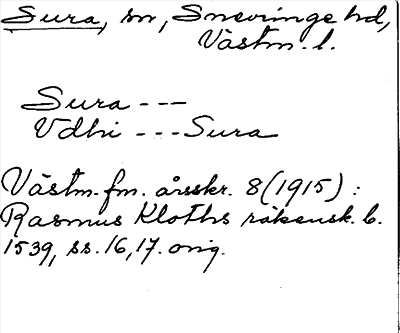 Sura, sn, Snevringe hd,
Västm. l.
Sura ---
Vdhi --- Sura
Västm. fm. årsskr. 8 (1915) :
Rasmus Kloths räkensk. b.
1539, ss. 16, 17. orig.